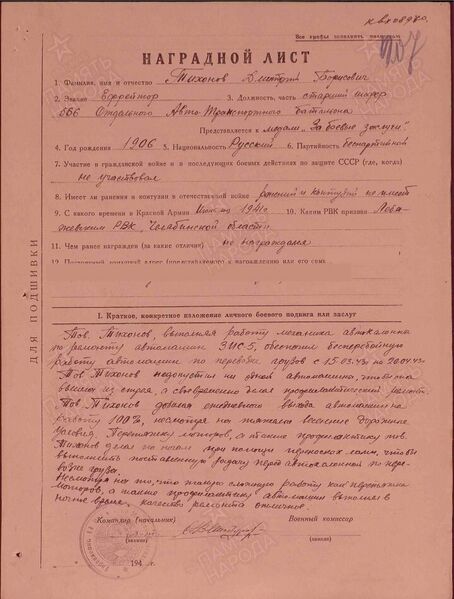 к вх 08980.
Все графы заполнять полностью
НАГРАДНОЙ ЛИСТ
1. Фамилия, имя и отчество Тихонов Дмитрий Борисович
2. Звание Ефрейтор 3. Должность, часть старший шофер
566 Отдельного Авто Транспортного батальона
Представляется к медали "За боевые заслуги"
4. Год рождения 1906 5. Национальность Русский 6. Партийность беспартийный
7. Участие в гражданской войне и в последующих боевых действиях по защите СССР (где, когда)
не участвовал
8. Имеет ли ранения и контузии в отечественной войне ранений и контузий не имеет
9. С какого времени в Красной Армии 1941г. 10. Каким РВК призван Леба-
жевским РВК Челябинской области
11. Чем ранее награжден (за какие отличия) не награждался
12. Постоянный домашний адрес (представляемого к награждению или его семьи)
ДЛЯ ПОДШИВКИ
I. Краткое, конкретное изложение личного боевого подвига или заслуг
Тов. Тихонов, выполняя работу механика автоколонны
по ремонту автомашин ЗИС-5, обеспечил бесперебойную
работу автомашин по перевозке грузов с 15.03.43 по 20.04.43
Тов Тихонов недопустил ни одной автомашины, чтобы та
вышла из строя, а своевременно делал профилактический ремонт.
Тов. Тихонов добился ежедневного выхода автомашин на
работу 100%, несмотря на тяжелые весенние дорожные
условия. Перетяжку моторов, а также профилактику тов.
Тихонов делал по ночам при помощи чтобы
выполнить поставленную задачу перед автоколонной по пере-
возке груза.
Несмотря на то, что такую сложную работу как перетяжка
моторов, а также профилактику автомашин выполнял в
ночное время, качество ремонта отличное.
Командир (начальник)
Военный комиссар
(звание)
(звание)
194 г.
ПАМЯТЬ
НАРОДА